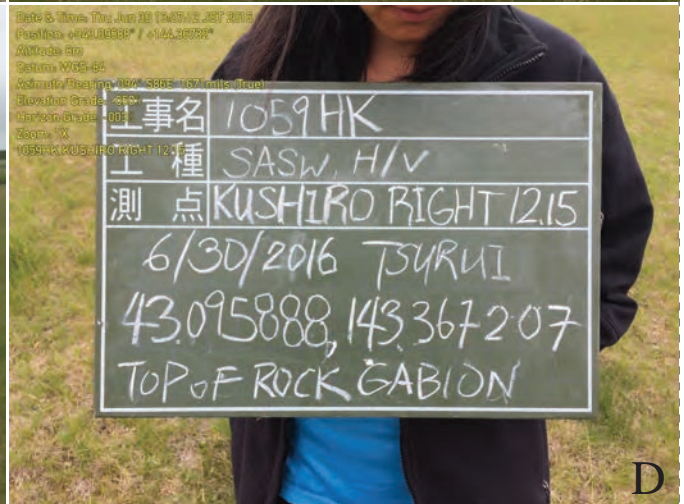 Date & Time: Thu Jun 30 13:27:12 JST 2016
Position: +043.09588° / +144.36732°
Altitude: 8m
Datum: WGS-84
Azimuth/Bearing: 094° S86E 1671mils (True)
Elevation Grade:
Horizon Grade:
Zoom: 1X
1059HK KUSHIRO RIGHT 12.15
工事名 1059HK
工種 SASW, H/V
測点 KUSHIRO RIGHT 12.15
6/30/2016 TSURUI
43.095888, 143.367207
TOP OF ROCK GABION
D